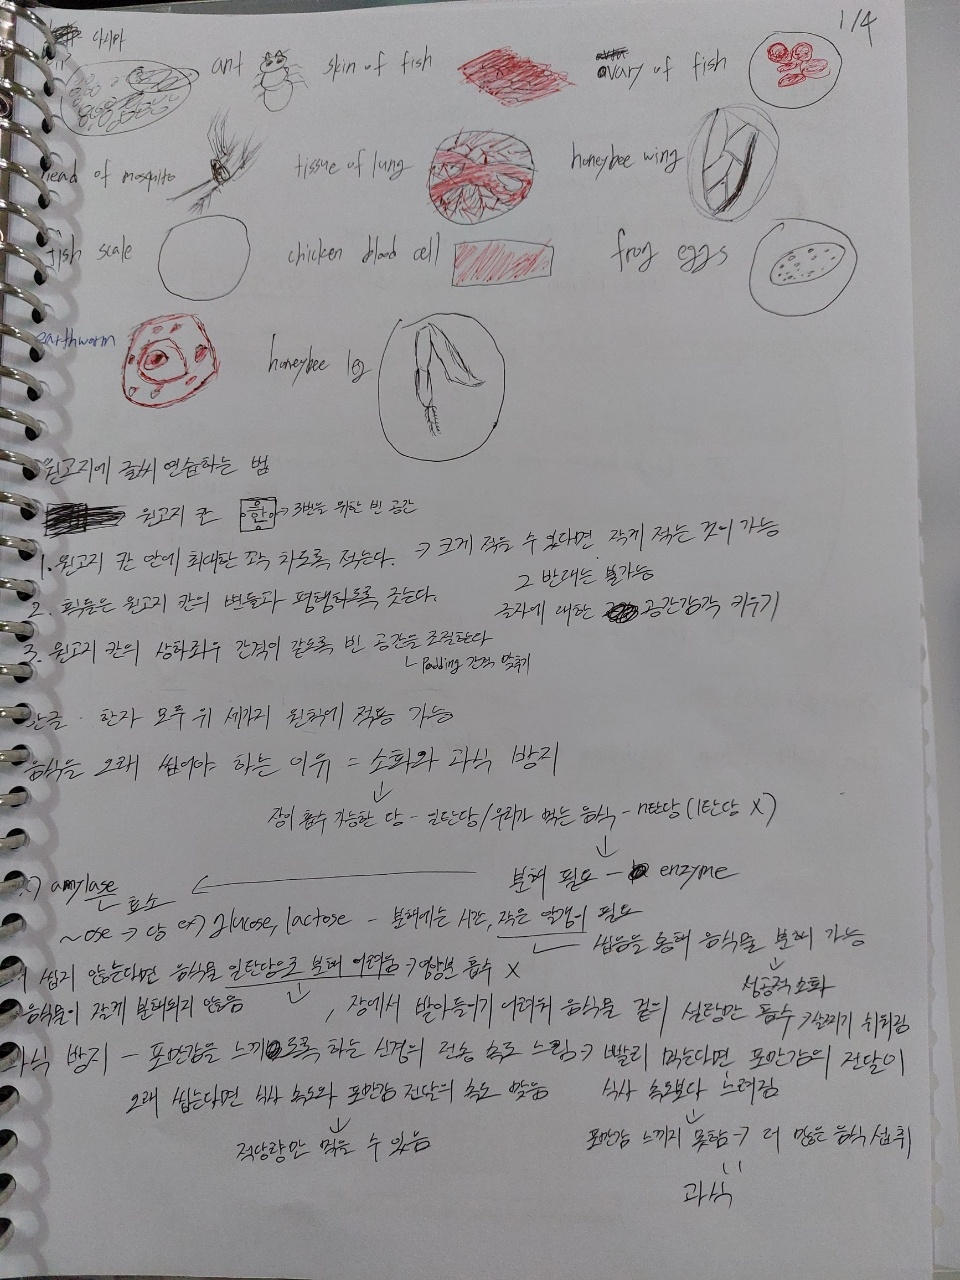 다시마
1/4
ant skin of fish ovary of fish
head of mosquito tissue of lung honeybee wing
fish scale chicken blood cell frog eggs
earthworm honeybee leg
원고지에 글씨 연습하는 법
원고지 칸 → 3번을 위한 빈 공간
1. 원고지 칸 안에 최대한 꽉 차도록 적는다. → 크게 적을 수 있다면 작게 적는 것이 가능
그 반대는 불가능
2. 획들은 원고지 칸의 변들과 평행하도록 긋는다.
글자에 대한 공간감각 키우기
3. 원고지 칸의 상하좌우 간격이 같도록 빈 공간을 조절한다
Padding 간격 맞추기
한글·한자 모두 위 세가지 원칙에 적용 가능
음식을 오래 씹어야 하는 이유 = 소화와 과식 방지
장이 흡수 가능한 당 - 일탄당/우리가 먹는 음식 - n탄당 (1탄당 X)
분해 필요 - enzyme
amylase
효소
~ose → 당 glucose, lactose - 분해에는 시간, 작은 알갱이 필요
씹음을 통해 음식물 분해 가능
성공적 소화
씹지 않는다면 음식물 일탄당으로 분해 어려움 → 영양분 흡수 X
음식물이 잘게 분해되지 않음, 장에서 받아들이기 어려워 음식물 겉의 설탕만 흡수 → 살찌기 쉬워짐
과식 방지 - 포만감을 느끼도록 하는 신경의 전송 속도 느림 → 빨리 먹는다면 포만감의 전달이
식사 속도보다 느려짐
오래 씹는다면 식사 속도와 포만감 전달의 속도 맞음
적당량만 먹을 수 있음
포만감 느끼지 못함 → 더 많은 음식 섭취
과식